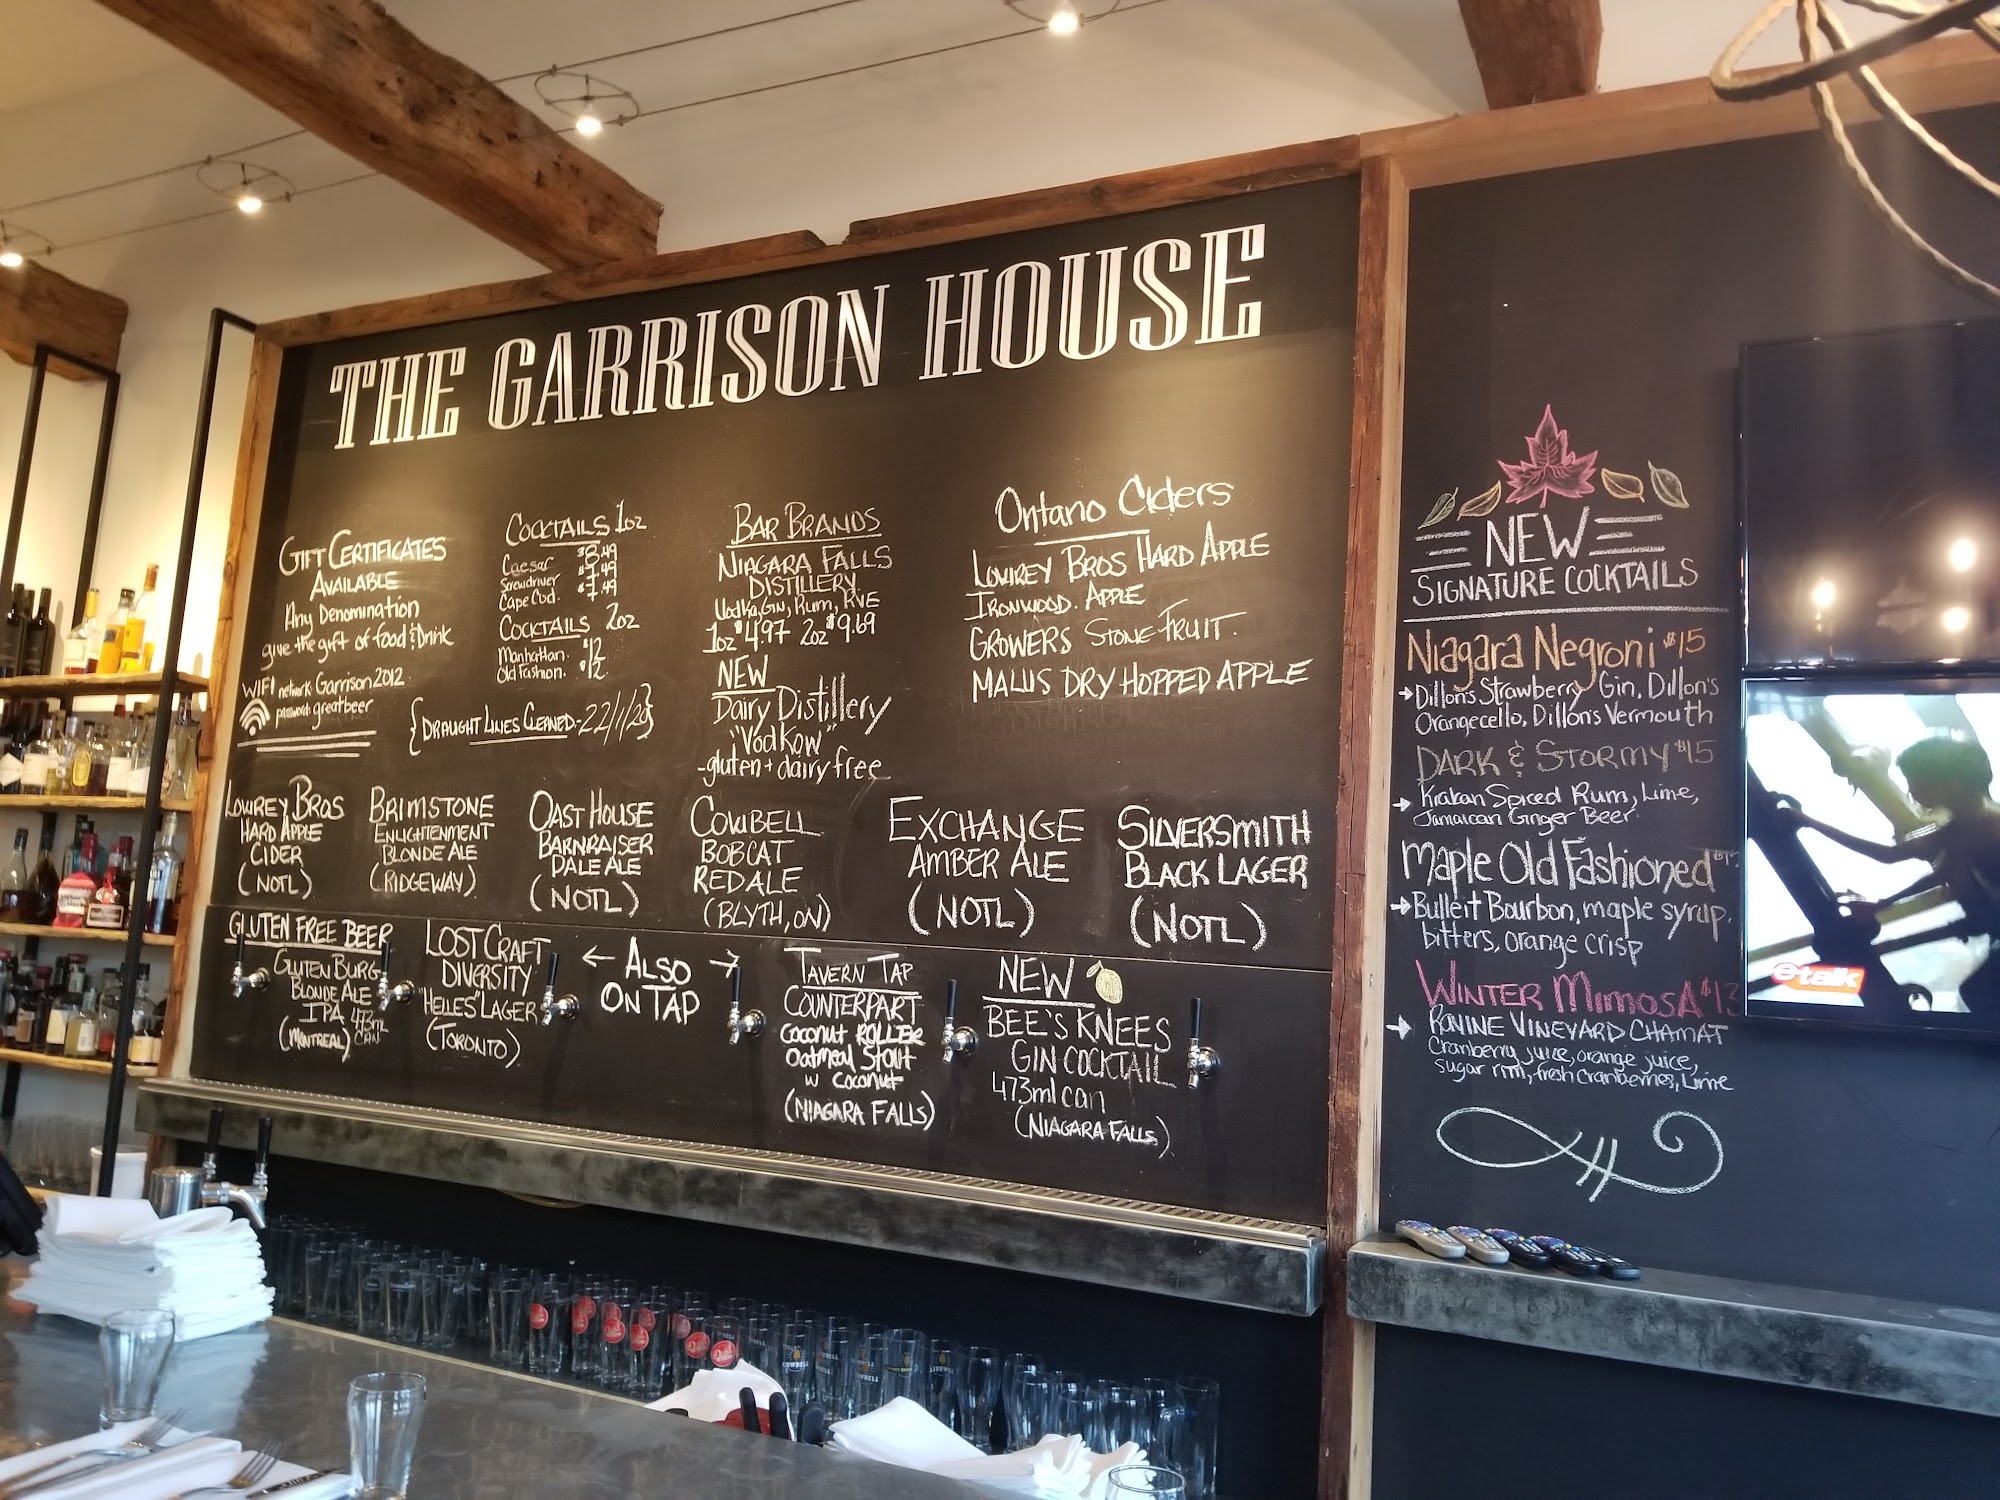 THE GARRISON HOUSE
GIFT CERTIFICATES
AVAILABLE
Any Denomination
give the gift of food & Drink
WIFI network: Garrison2012
password: greatbeer
COCKTAILS 1oz
Caesar $8.49
Screwdriver $7.49
Cape Cod. $7.49
COCKTAILS 2oz
Manhattan. $12
Old Fashion. $12
{DRAUGHT LINES CLEANED-22/1/20}
BAR BRANDS
NIAGARA FALLS
DISTILLERY
Vodka, Gin, Rum, RYE
1oz $4.97 2oz $9.69
NEW
Dairy Distillery
"VodKow"
-gluten + dairy free
Ontario Ciders
LOWREY BROS HARD APPLE
IRONWOOD. APPLE
GROWERS STONE FRUIT.
MALUS DRY HOPPED APPLE
LOWREY BROS
HARD APPLE
CIDER
(NOTL)
BRIMSTONE
ENLIGHTENMENT
BLONDE ALE
(RIDGEWAY)
OAST HOUSE
BARNRAISER
PALE ALE
(NOTL)
COWBELL
BOBCAT
RED ALE
(BLYTH, ON)
EXCHANGE
AMBER ALE
(NOTL)
SILVERSMITH
BLACK LAGER
(NOTL)
GLUTEN FREE BEER
GLUTEN BURG
BLONDE ALE
IPA 473mL
CAN
(MONTREAL)
LOST CRAFT
DIVERSITY
"HELLES" LAGER
(TORONTO)
← ALSO →
ON TAP
TAVERN TAP
COUNTERPART
COCONUT ROLLER
Oatmeal Stout
w coconut
(NIAGARA FALLS)
NEW
BEE'S KNEES
GIN COCKTAIL
473ml can
(NIAGARA FALLS)
NEW
SIGNATURE COCKTAILS
Niagara Negroni $15
→Dillon's Strawberry Gin, Dillon's
Orangecello, Dillon's Vermouth
DARK & STORMY $15
→ Krakan Spiced Rum, Lime,
Jamaican Ginger Beer
Maple Old Fashioned
→Bulleit Bourbon, maple syrup,
bitters, orange crisp
WINTER MIMOSA $13
→ RAVINE VINEYARD CHAMAT
Cranberry juice, orange juice,
sugar rim, fresh cranberries, Lime
etalk
COWBELL